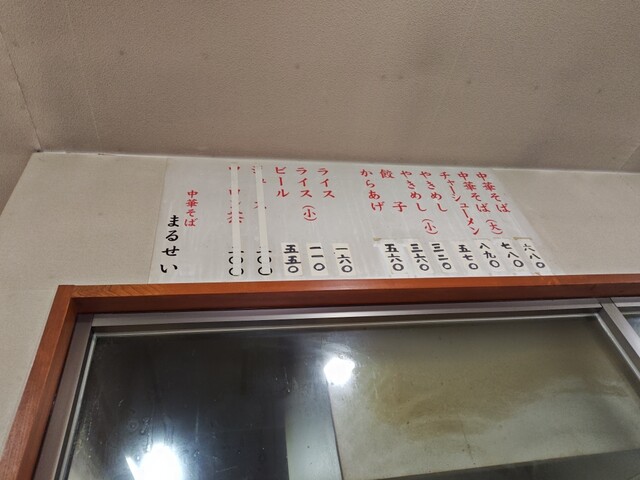 中華そば 六八〇
中華そば(大) 七八〇
チャーシューメン 八九〇
やきめし 五七〇
やきめし(小) 三二〇
餃子 三六〇
からあげ 五六〇
ライス 一六〇
ライス(小) 一一〇
ビール 五五〇
中華そば まるせい